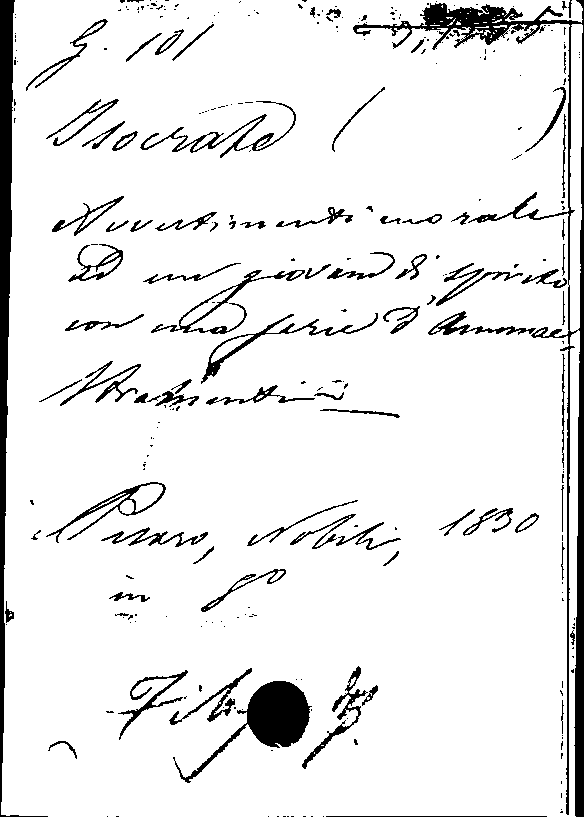 G. 101
Isocrate ( )
Avvertimenti morali
ad un giovane di spirito
con una serie d'Ammae-
stramenti
Pesaro, Nobili, 1830
in 8°